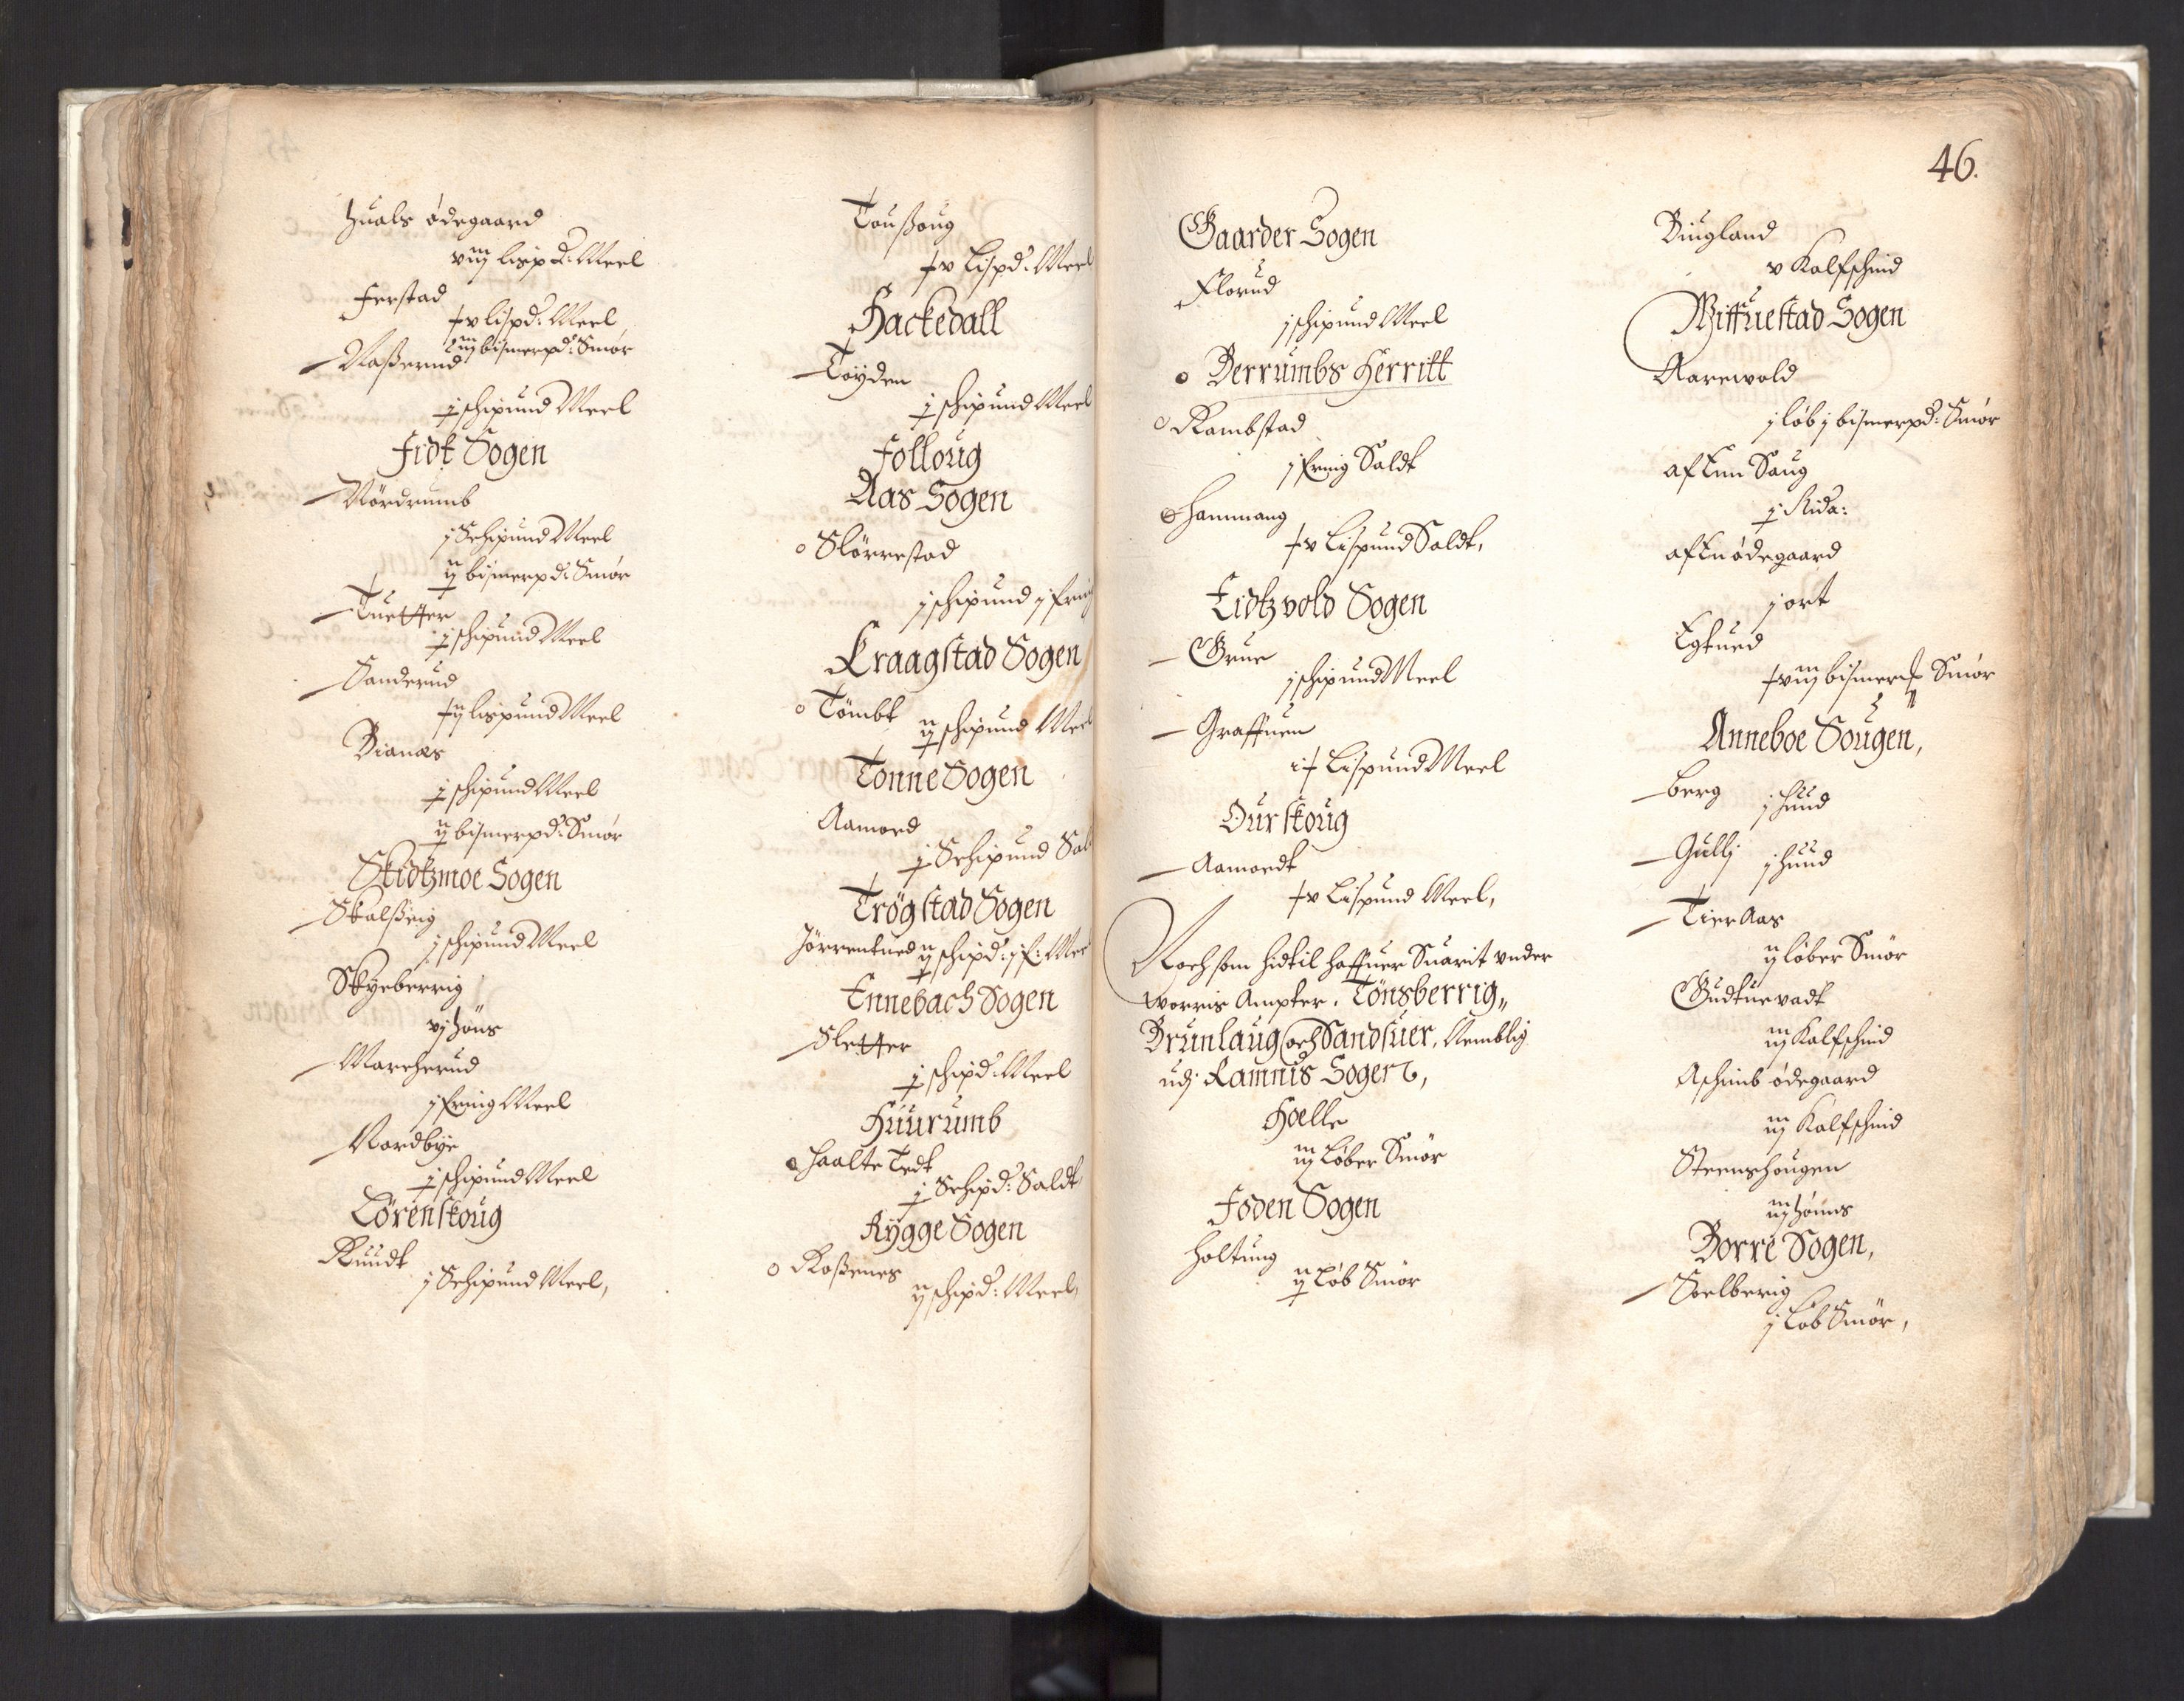 Huals ødegaard
viij lisp d: Meel
Ferstad
+v lispd: Meel
iiij bismerpd: Smør
Naßerud
j schipund Meel
Fidt Sogen
Nördrumb
j Schipund Meel
ij bismerpd: Smør
Tuetter
j schipund Meel
Sanderud
+ij lispund Meel
Bianæs
j schipund Meel
ij bismerpd: Smør
Skidtzmoe Sogen
Skalßrig
j schipund Meel
Skÿeberrig
vj höns
Marcherud
j fring Meel
Nordbÿe
j schipund Meel
Lörenskoug
Ruudt
j Schipund Meel,
Toußoug
+v Lispd: Meel
Hackedall
Töÿden
j schipund Meel
Folloug
Aas Sogen
Slörrestad
j schipund j fring
Kraagstad Sogen
Tömbt
ij schipund Meel
Tonne Sogen
Aamoed
j Schipund Sal
Trögstad Sogen
Jörrentued ij schipd: j f: Meel
Ennebach Sogen
Sletter
j schipd: Meel
Huurumb
Haalte Tedt
j Schipd: Saldt
Rÿgge Sogen
Roßenes
ij schipd: Meel,
46.
Gaarder Sogen
Florud
j schipund Meel
Berrumbs Herritt
Rambstad
j fring Saldt
Hammang
+v Lispund Saldt,
Eidtzvold Sogen
Grue
j schipund Meel
Graffuen
i+ Lispund Meel
Ourskoug
Aamoedt
+v Lispund Meel,
Noch som hidtil haffuer Suarit vnder
worris Ampter. Tönsberrig,,
Brunlaug och Sandsuer, Nemblig
udj Ramnis Sogen,
Hoelle
iij Løber Smör
Foden Sogen
Holtung
ij Løb Smör
Biugland
v Kalfschind
Wiffuestad Sogen
Aarevold
j løb j bismerpd: Smör
aff Enn Saug
j Rida:
aff En ødegaard
j ort
Egtued
+viij bismer Smör
Anneboe Sougen,
Berg
j huud
Gullj
j huud
Tier Aas
ij løber Smör
Gudtuevadt
iij Kalfschind
Aschimb ödegaard
iij Kalfschind
Steenshougen
iij höns
Borre Sogen,
Soelberig
j Løb Smör,